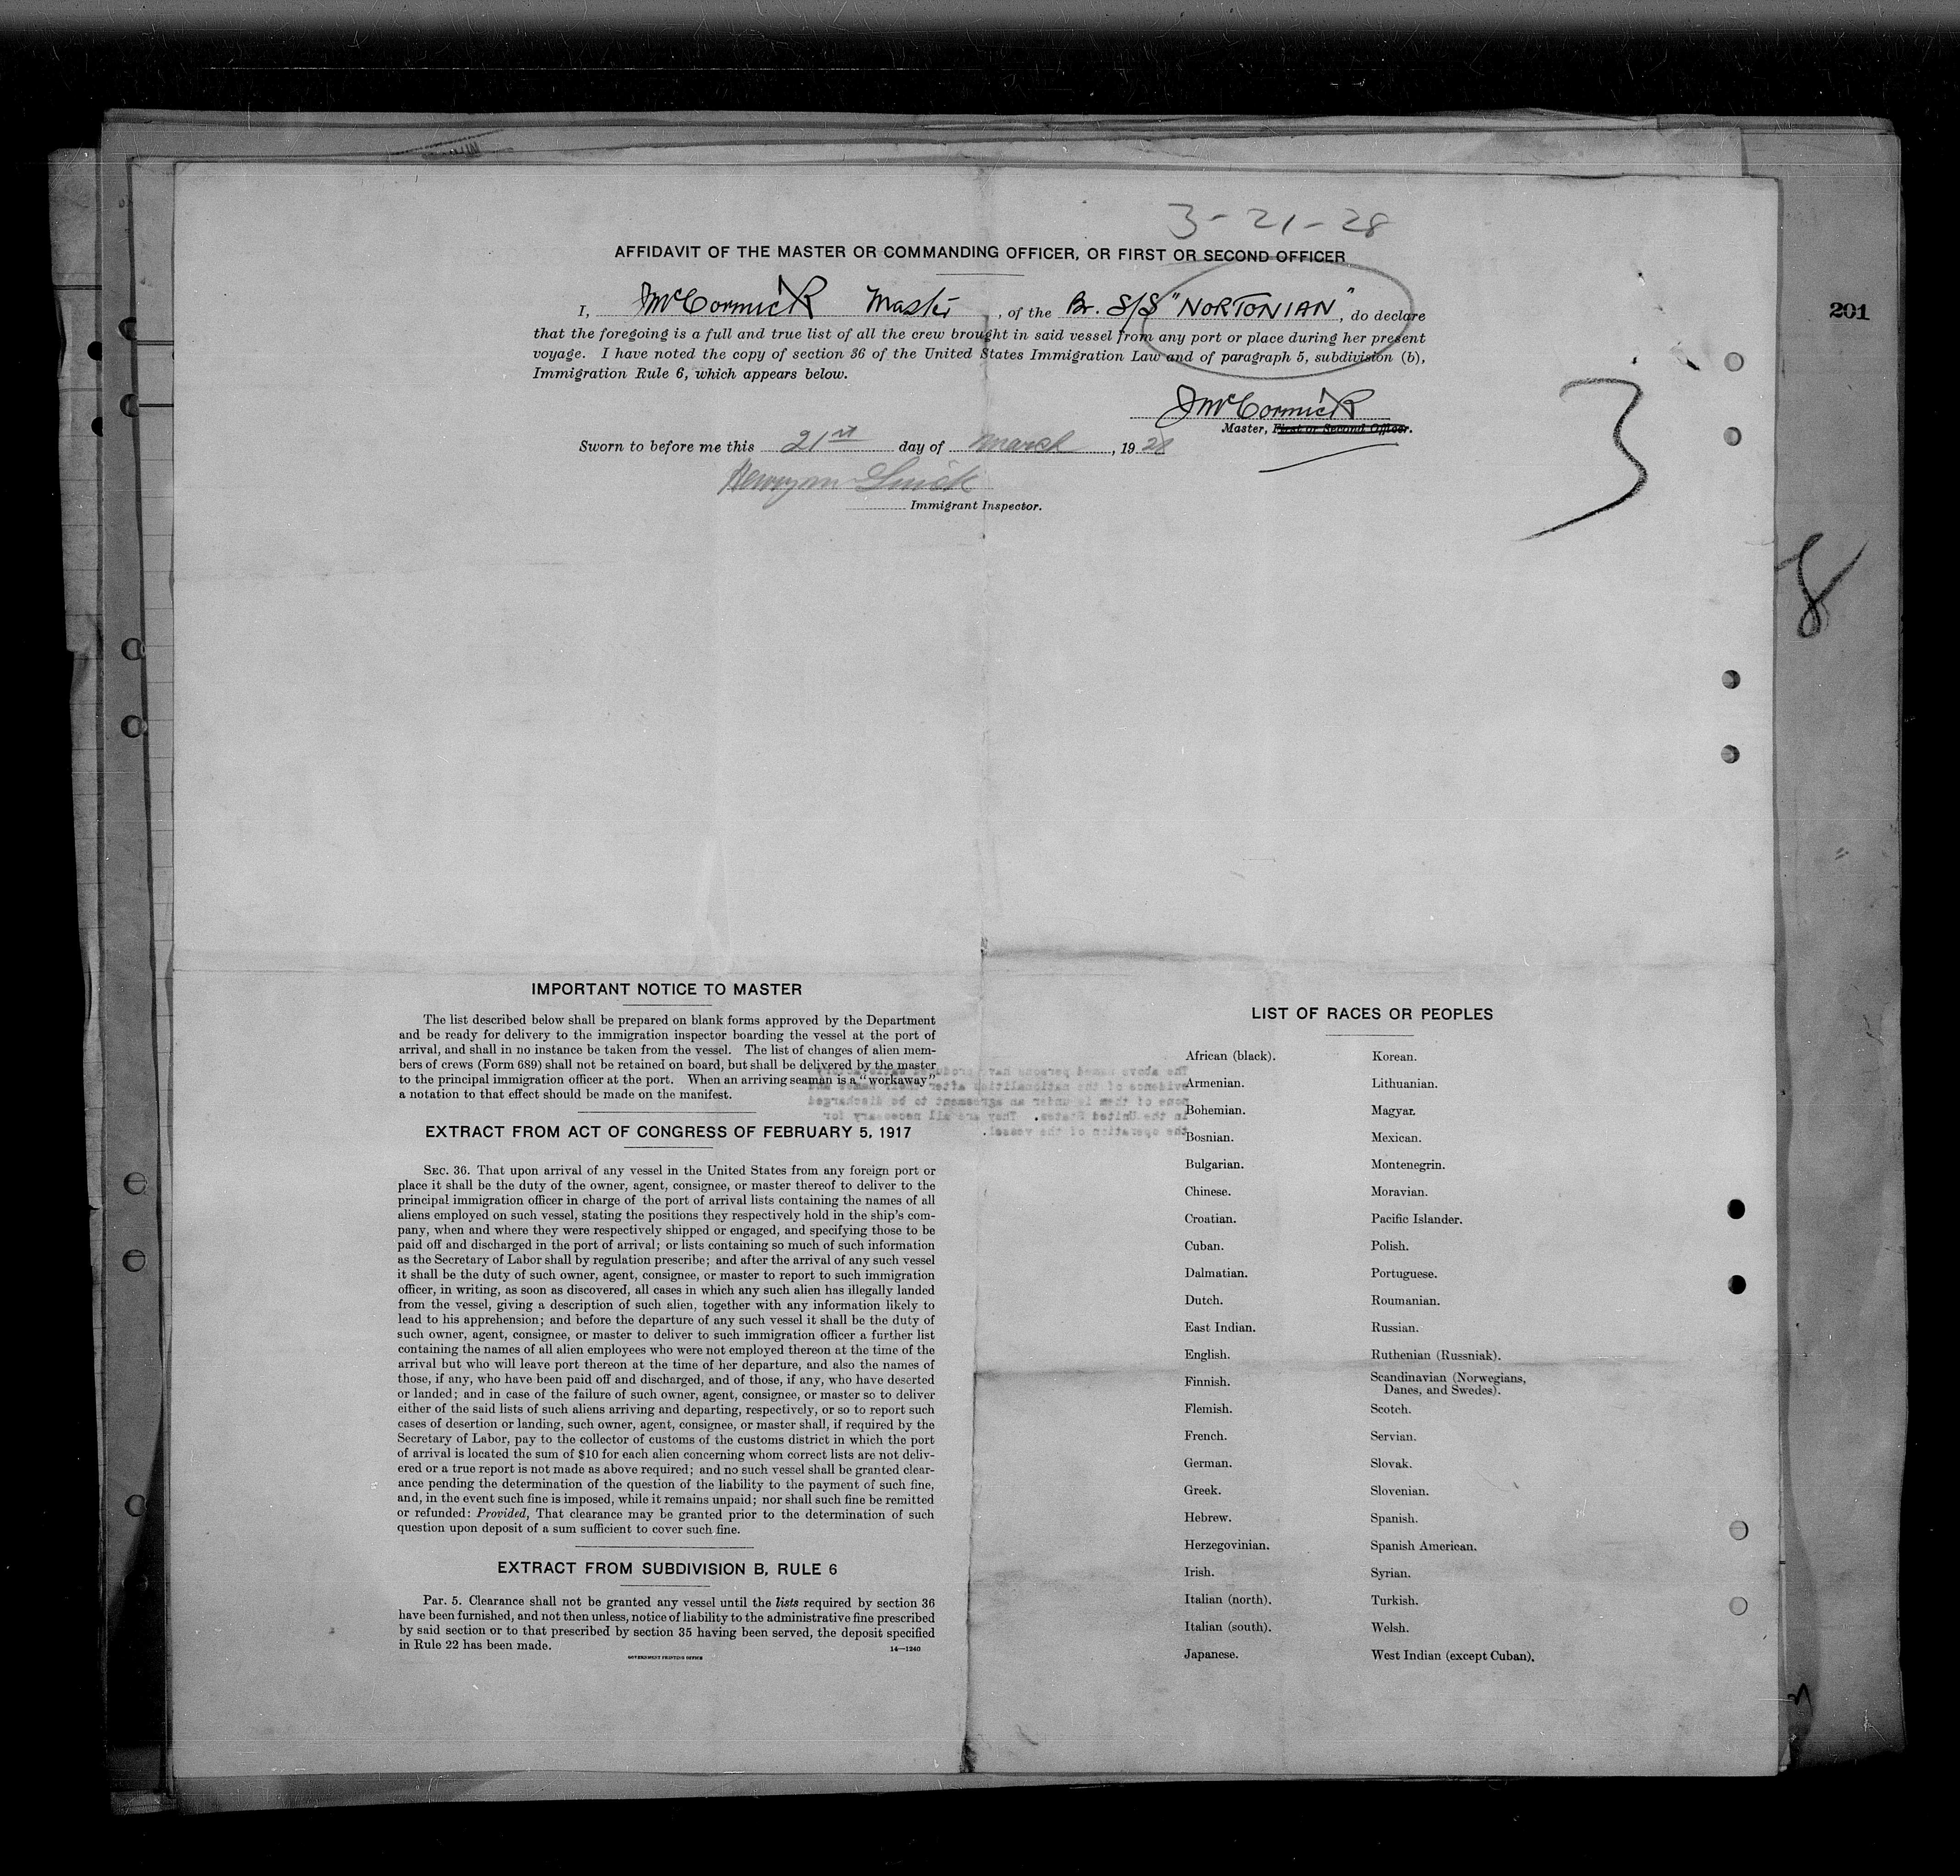 3-21-28
AFFIDAVIT OF THE MASTER OR COMMANDING OFFICER, OR FIRST OR SECOND OFFICER
I, JMcCormick Master, of the Br. S/S "NORTONIAN", do declare
that the foregoing is a full and true list of all the crew brought in said vessel from any port or place during her present
voyage. I have noted the copy of section 36 of the United States Immigration Law and of paragraph 5, subdivision (b),
Immigration Rule 6, which appears below.
JMcCormick
Master, First or Second Officer.
Sworn to before me this 21st day of March, 1928
Immigrant Inspector.
201
3
8
IMPORTANT NOTICE TO MASTER
The list described below shall be prepared on blank forms approved by the Department
and be ready for delivery to the immigration inspector boarding the vessel at the port of
arrival, and shall in no instance be taken from the vessel. The list of changes of alien mem-
bers of crews (Form 689) shall not be retained on board, but shall be delivered by the master
to the principal immigration officer at the port. When an arriving seaman is a "workaway"
a notation to that effect should be made on the manifest.
The above named persons have produced satisfactory
evidence of the nationalities after their names and
none of them is under an agreement to be discharged
in the United States. They are all necessary for
the operation of the vessel.
EXTRACT FROM ACT OF CONGRESS OF FEBRUARY 5, 1917
SEC. 36. That upon arrival of any vessel in the United States from any foreign port or
place it shall be the duty of the owner, agent, consignee, or master thereof to deliver to the
principal immigration officer in charge of the port of arrival lists containing the names of all
aliens employed on such vessel, stating the positions they respectively hold in the ship's com-
pany, when and where they were respectively shipped or engaged, and specifying those to be
paid off and discharged in the port of arrival; or lists containing so much of such information
as the Secretary of Labor shall by regulation prescribe; and after the arrival of any such vessel
it shall be the duty of such owner, agent, consignee, or master to report to such immigration
officer, in writing, as soon as discovered, all cases in which any such alien has illegally landed
from the vessel, giving a description of such alien, together with any information likely to
lead to his apprehension; and before the departure of any such vessel it shall be the duty of
such owner, agent, consignee, or master to deliver to such immigration officer a further list
containing the names of all alien employees who were not employed thereon at the time of the
arrival but who will leave port thereon at the time of her departure, and also the names of
those, if any, who have been paid off and discharged, and of those, if any, who have deserted
or landed; and in case of the failure of such owner, agent, consignee, or master so to deliver
either of the said lists of such aliens arriving and departing, respectively, or so to report such
cases of desertion or landing, such owner, agent, consignee, or master shall, if required by the
Secretary of Labor, pay to the collector of customs of the customs district in which the port
of arrival is located the sum of $10 for each alien concerning whom correct lists are not deliv-
ered or a true report is not made as above required; and no such vessel shall be granted clear-
ance pending the determination of the question of the liability to the payment of such fine,
and, in the event such fine is imposed, while it remains unpaid; nor shall such fine be remitted
or refunded: Provided, That clearance may be granted prior to the determination of such
question upon deposit of a sum sufficient to cover such fine.
EXTRACT FROM SUBDIVISION B, RULE 6
Par. 5. Clearance shall not be granted any vessel until the lists required by section 36
have been furnished, and not then unless, notice of liability to the administrative fine prescribed
by said section or to that prescribed by section 35 having been served, the deposit specified
in Rule 22 has been made.
14—1240
GOVERNMENT PRINTING OFFICE
LIST OF RACES OR PEOPLES
African (black).
Armenian.
Bohemian.
Bosnian.
Bulgarian.
Chinese.
Croatian.
Cuban.
Dalmatian.
Dutch.
East Indian.
English.
Finnish.
Flemish.
French.
German.
Greek.
Hebrew.
Herzegovinian.
Irish.
Italian (north).
Italian (south).
Japanese.
Korean.
Lithuanian.
Magyar.
Mexican.
Montenegrin.
Moravian.
Pacific Islander.
Polish.
Portuguese.
Roumanian.
Russian.
Ruthenian (Russniak).
Scandinavian (Norwegians,
Danes, and Swedes).
Scotch.
Servian.
Slovak.
Slovenian.
Spanish.
Spanish American.
Syrian.
Turkish.
Welsh.
West Indian (except Cuban).